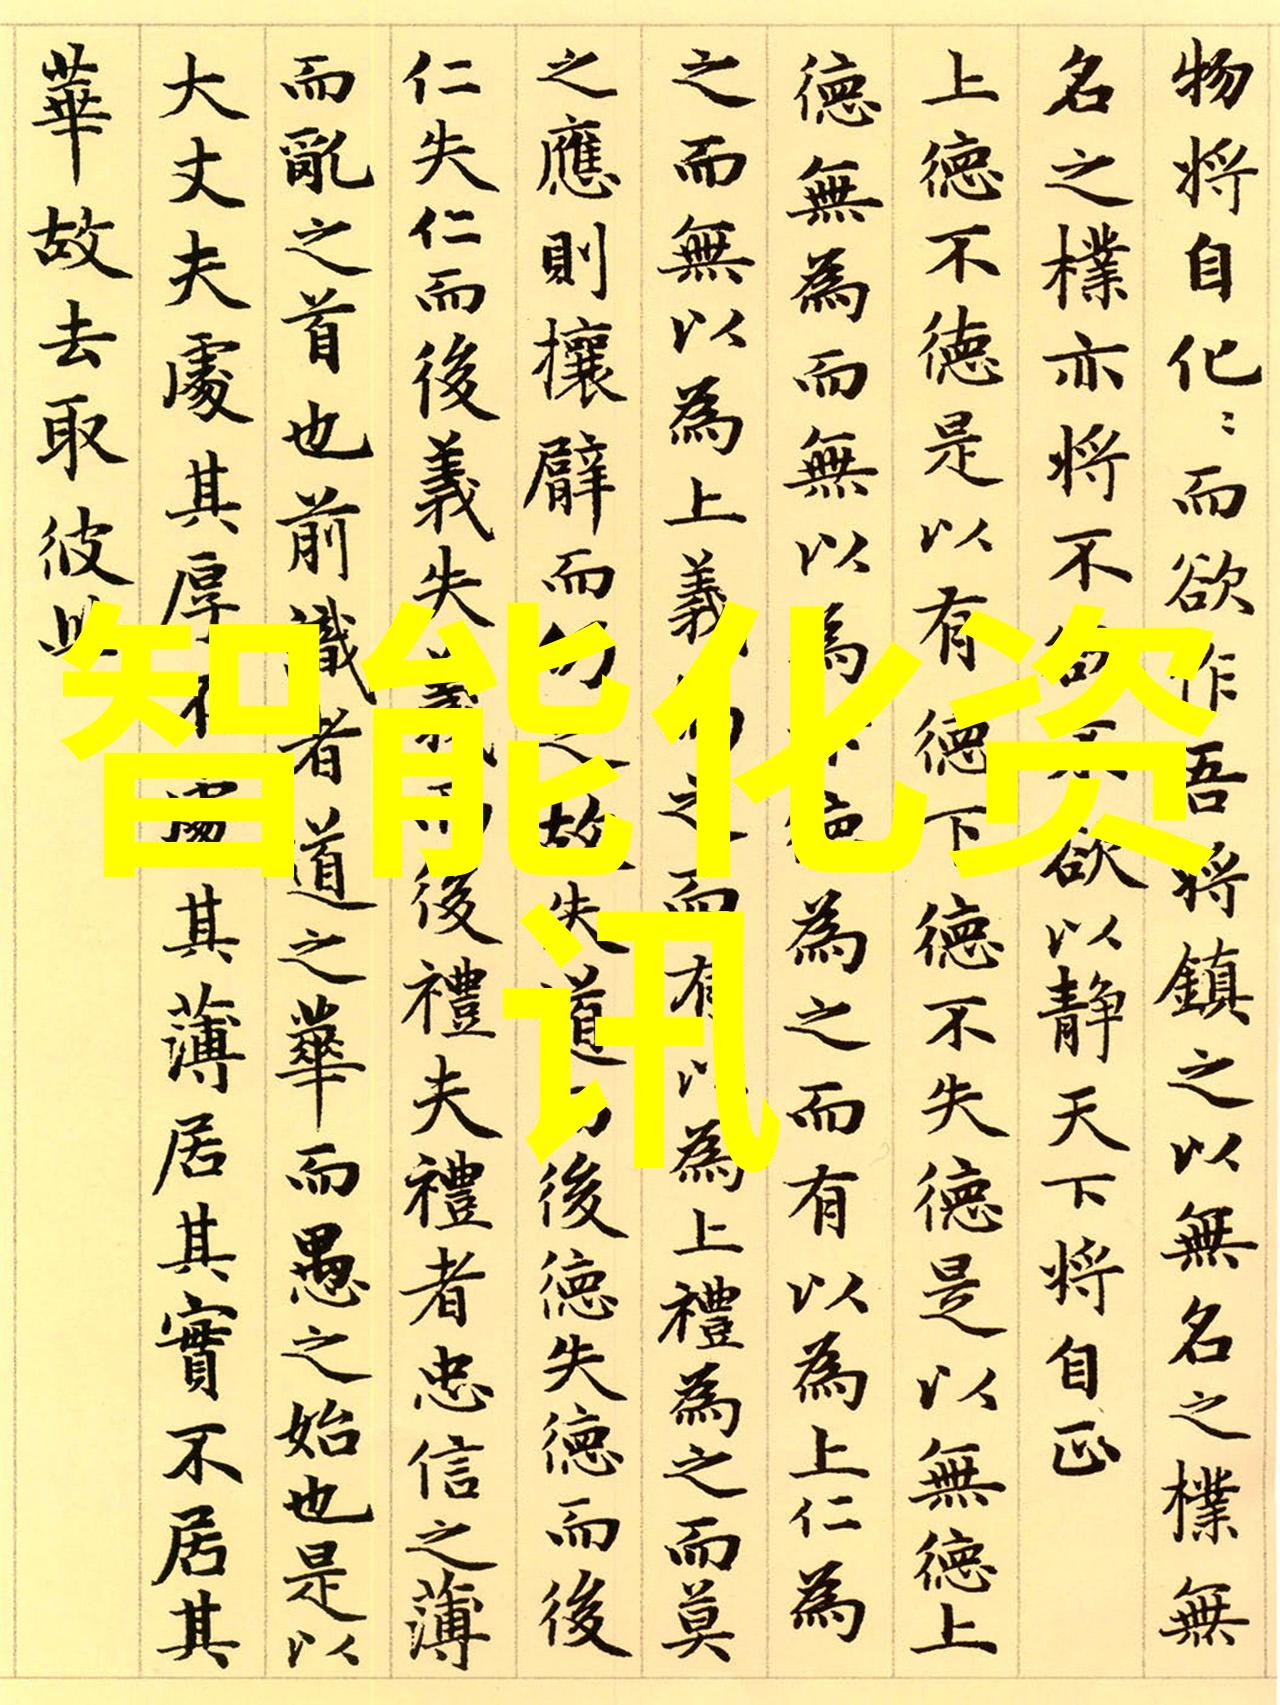 物将自化：而欲作吾将鎮之以無名之樸無
名之樸亦将不欲不欲以静天下将自正
上德不德是以有德下德不失德是以無德上
德無為而無以為下德為之而有以為上仁為
之而無以為上義為之而有以為上禮為之而莫
之應則攘臂而仍之故失道而後德失德而後
仁失仁而後義失義而後禮夫禮者忠信之薄
而亂之首也前識者道之華而愚之始也是以
大丈夫處其厚不處其薄居其實不居其
華故去取彼此
智能化资
讯